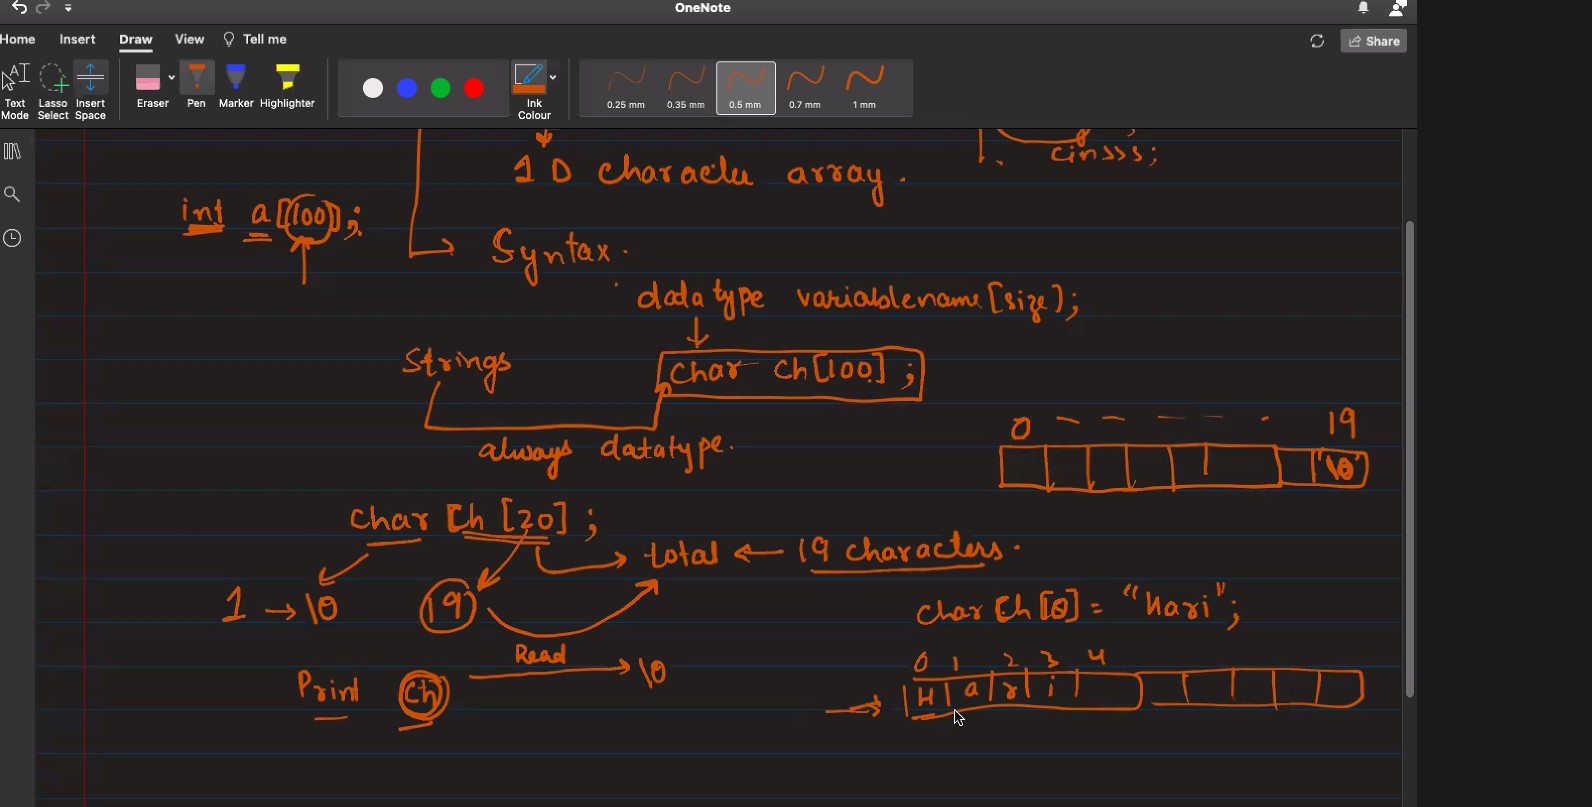 OneNote
Home Insert Draw View Tell me
Share
Text Mode
Lasso Select
Insert Space
Eraser
Pen
Marker
Highlighter
Ink Colour
0.25 mm
0.35 mm
0.5 mm
0.7 mm
1 mm
cin
1 D character array.
int a[100];
Syntax.
datatype variablename[size];
Strings
char ch[100];
always datatype.
0 19
'\0'
char ch[20];
total ← 19 characters.
1 → \0
19
char ch[] = "Hari";
Read
0 1 2 3 4
Print ch → \0
H a r i